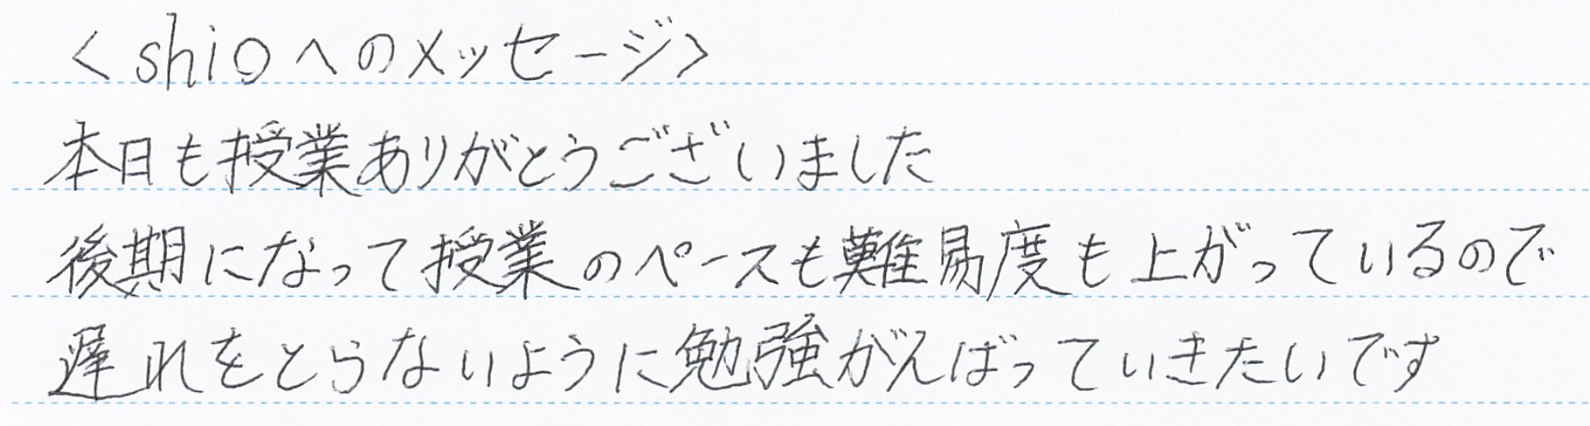 <shioへのメッセージ>
本日も授業ありがとうございました
後期になって授業のペースも難易度も上がっているので
遅れをとらないように勉強がんばっていきたいです